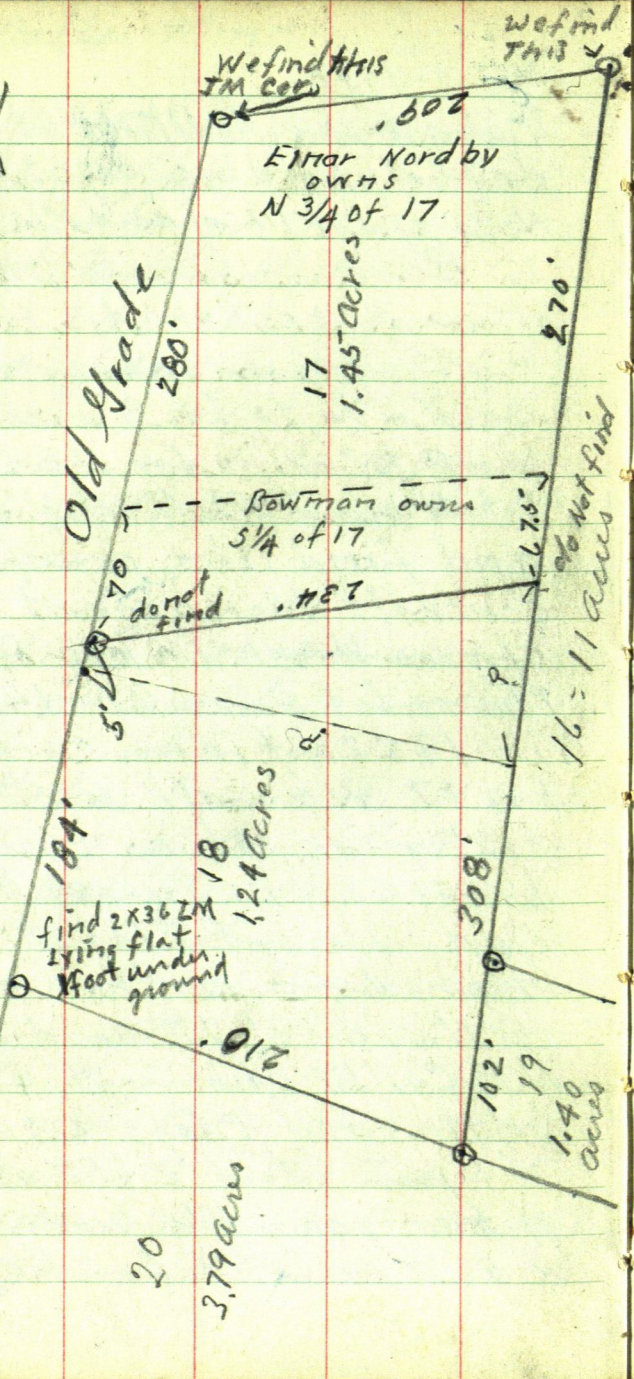 We find
This
We find this
IM Cor.
209'
Einar Nordby
owns
N 3/4 of 17
Old Grade
280'
17
1.45 Acres
270'
Bowman owns
S 1/4 of 17
70
67.5'
do Not find
16 = 11 acres
do not
find
234'
5'
?
?
184'
18
1.24 Acres
308'
find 2x36 IM
lying flat
1 foot under
ground
210'
102'
19
1.40
acres
20
3.79 acres